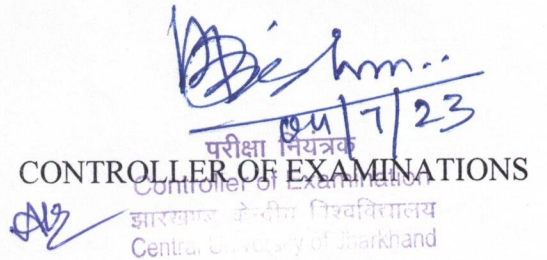 04/7/23
परीक्षा नियंत्रक
CONTROLLER OF EXAMINATIONS
Controller of Examination
झारखण्ड केन्द्रीय विश्वविद्यालय
Central University of Jharkhand